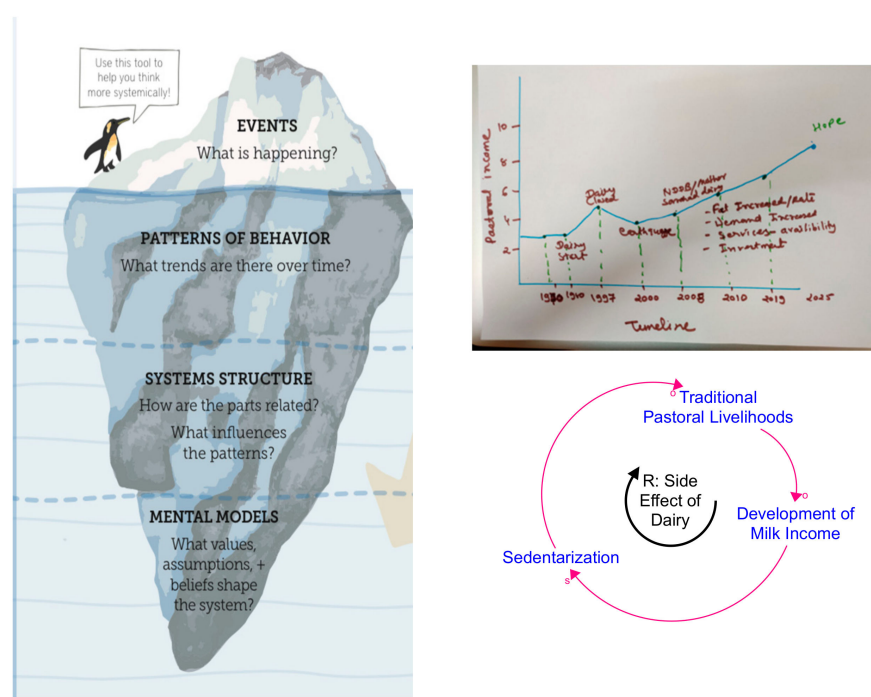 Use this tool to
help you think
more systemically!
EVENTS
What is happening?
PATTERNS OF BEHAVIOR
What trends are there over time?
SYSTEMS STRUCTURE
How are the parts related?
What influences
the patterns?
MENTAL MODELS
What values,
assumptions, +
beliefs shape
the system?
Pastoral income
10
8
6
4
2
Hope
Dairy
Closed
Dairy
Start
NDDB/
dairy
- Fat Increased/
- Demand Increased
- Services
- Investment
1910
1997
2000
2008
2010
2019
2025
Timeline
o
Traditional
Pastoral Livelihoods
R: Side
Effect of
Dairy
o
Development of
Milk Income
Sedentarization
s